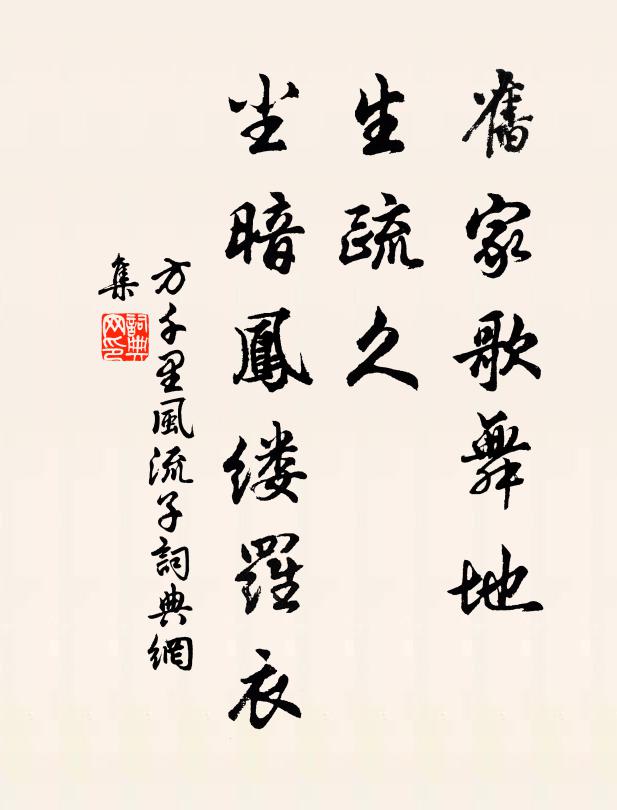 舊家歌舞地
生疏久
尘暗鳳缕羅衣
方千里風流子詞典網
集
詞典
网印